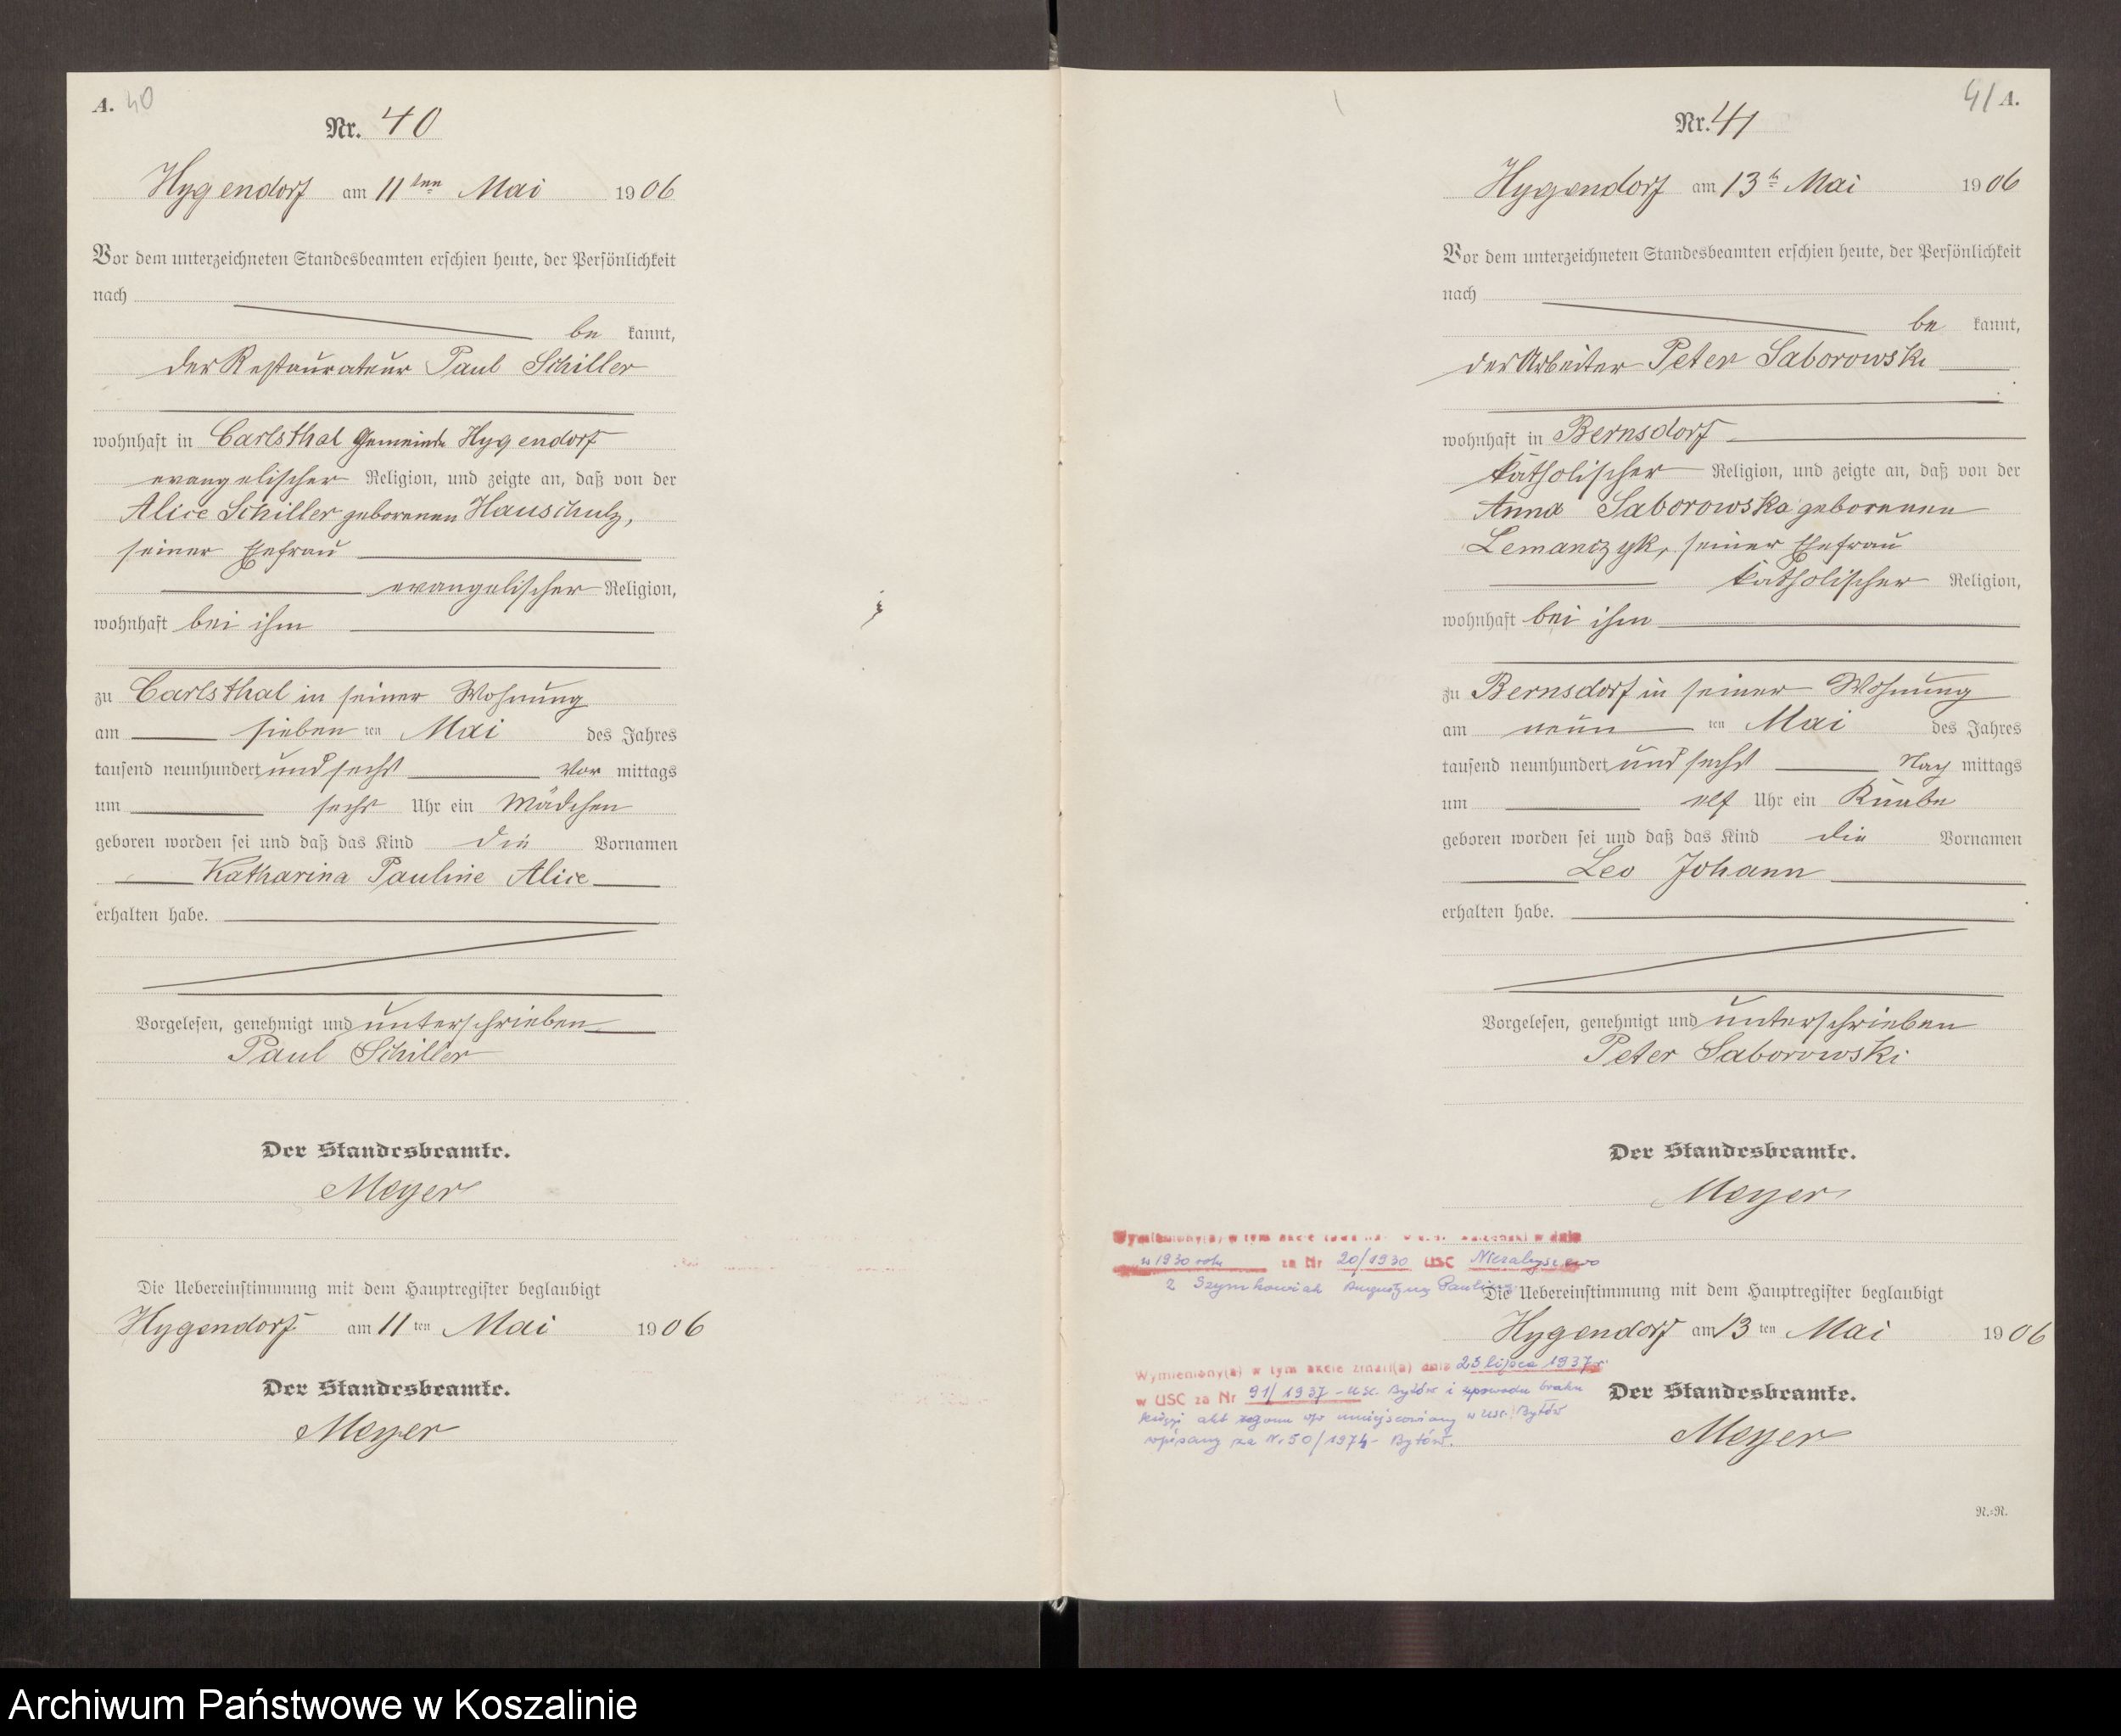 A. 40
Nr. 40
Hygendorf am 11ten Mai 1906
Vor dem unterzeichneten Standesbeamten erschien heute, der Persönlichkeit
nach
be kannt,
der Restaurateur Paul Schiller
wohnhaft in Carlsthal Gemeinde Hygendorf
evangelischer Religion, und zeigte an, daß von der
Alice Schiller geborenen Hauschulz,
seiner Ehefrau
evangelischer Religion,
wohnhaft bei ihm
zu Carlsthal in seiner Wohnung
am sieben ten Mai des Jahres
tausend neunhundert und sechs Vor mittags
um sechs Uhr ein Mädchen
geboren worden sei und daß das Kind die Vornamen
Katharina Pauline Alice
erhalten habe.
Vorgelesen, genehmigt und unterschrieben
Paul Schiller
Der Standesbeamte.
Meyer
Die Uebereinstimmung mit dem Hauptregister beglaubigt
Hygendorf am 11 ten Mai 1906
Der Standesbeamte.
Meyer
41 A.
Nr. 41
Hygendorf am 13 Mai 1906
Vor dem unterzeichneten Standesbeamten erschien heute, der Persönlichkeit
nach
be kannt,
der Arbeiter Peter Saborowski
wohnhaft in Bernsdorf
katholischer Religion, und zeigte an, daß von der
Anna Saborowska geborenen
Lemanczyk, seiner Ehefrau
katholischer Religion,
wohnhaft bei ihm
zu Bernsdorf in seiner Wohnung
am neun ten Mai des Jahres
tausend neunhundert und sechs Nach mittags
um elf Uhr ein Knabe
geboren worden sei und daß das Kind die Vornamen
Leo Johann
erhalten habe.
Vorgelesen, genehmigt und unterschrieben
Peter Saborowski
Der Standesbeamte.
Meyer
Wymieniony(a) w tym akcie w dniu
w 1930 roku za Nr 20/1930 USC Niezabyszewo
z Szymkowiak Augustyną Pauliną
Die Uebereinstimmung mit dem Hauptregister beglaubigt
Hygendorf am 13 ten Mai 1906
Wymieniony(a) w tym akcie zmarł(a) dnia 23 lipca 1937 r.
w USC za Nr 91/1937 - usc. Bytów i z powodu braku
księgi akt zgonu w/w umiejscowiony w usc. Bytów
wpisany za Nr 50/1974 - Bytów.
Der Standesbeamte.
Meyer
R.=R.
Archiwum Państwowe w Koszalinie